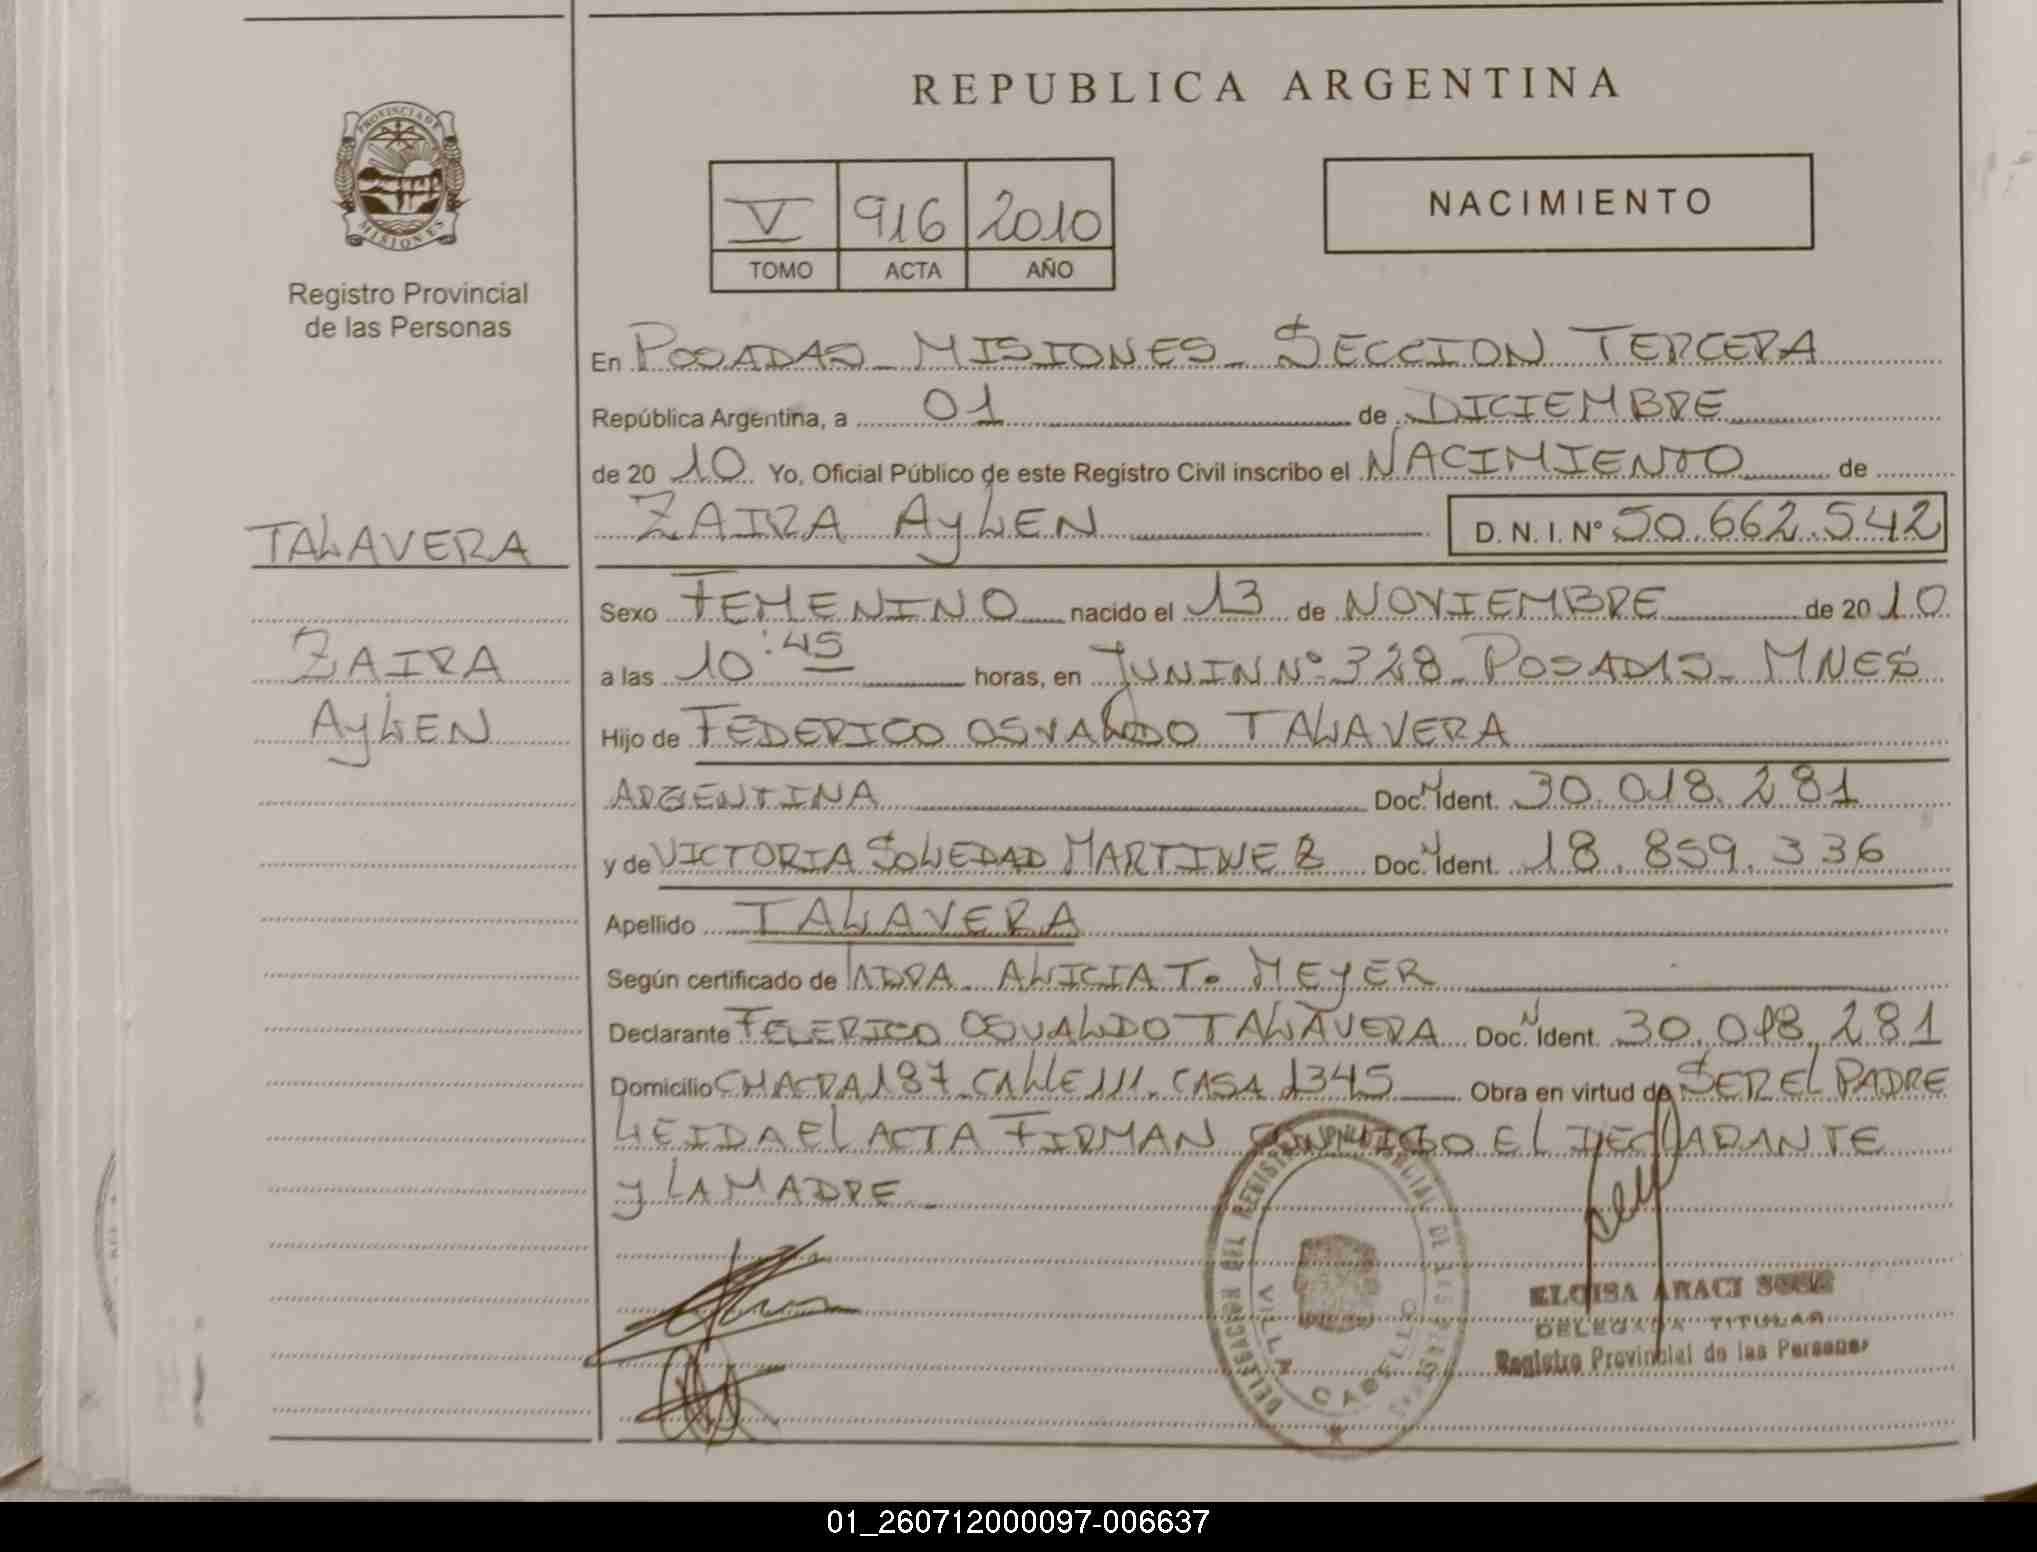 REPUBLICA ARGENTINA
PROVINCIA DE
MISIONES
Registro Provincial
de las Personas
V 916 2010
TOMO ACTA AÑO
NACIMIENTO
En POSADAS - MISIONES - SECCION TERCERA
República Argentina, a 01 de DICIEMBRE
de 20 10 Yo, Oficial Público de este Registro Civil inscribo el NACIMIENTO de
ZAIRA AYLEN D. N. I. N° 50.662.542
TALAVERA
ZAIRA
AYLEN
Sexo FEMENINO nacido el 13 de NOVIEMBRE de 20 10
a las 10:45 horas, en JUNIN N° 328 - POSADAS - MNES
Hijo de FEDERICO OSVALDO TALAVERA
ARGENTINA Doc. N Ident. 30.018.281
y de VICTORIA SOLEDAD MARTINEZ Doc. N Ident. 18.859.336
Apellido TALAVERA
Según certificado de ALICIA T. MEYER
Declarante FEDERICO OSVALDO TALAVERA Doc. N Ident. 30.018.281
Domicilio CHACRA 187 - CALLE 111 - CASA 1345 Obra en virtud de SER EL PADRE
LEIDA EL ACTA FIRMAN CONMIGO EL DECLARANTE
y LA MADRE -
DELEGACION DEL REGISTRO PROVINCIAL DE LAS PERSONAS
VILLA CABELLO
ELOISA ARACI
DELEGADA TITULAR
Registro Provincial de las Personas
01_260712000097-006637